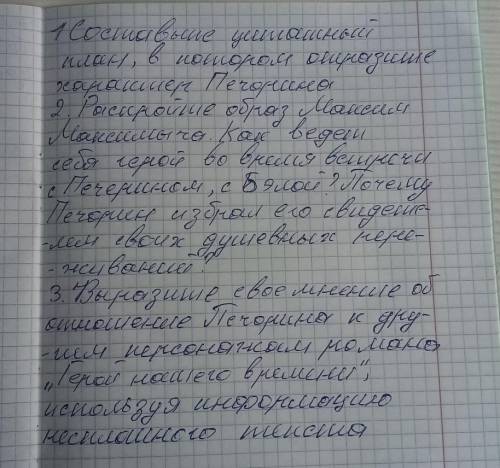 1 Составьте цитатный
план, в котором отразите
характер Печорина
2. Раскройте образ Максим
Максимыча. Как ведет
себя герой во время встречи
с Печериным, с Бэлой? Почему
Печорин избрал его свидете-
-лем своих душевных пере-
-живаний?
3. Выразите свое мнение об
отношение Печорина к дру-
-гим персонажам романа
„Герой нашего времени",
используя информацию
несплошного текста